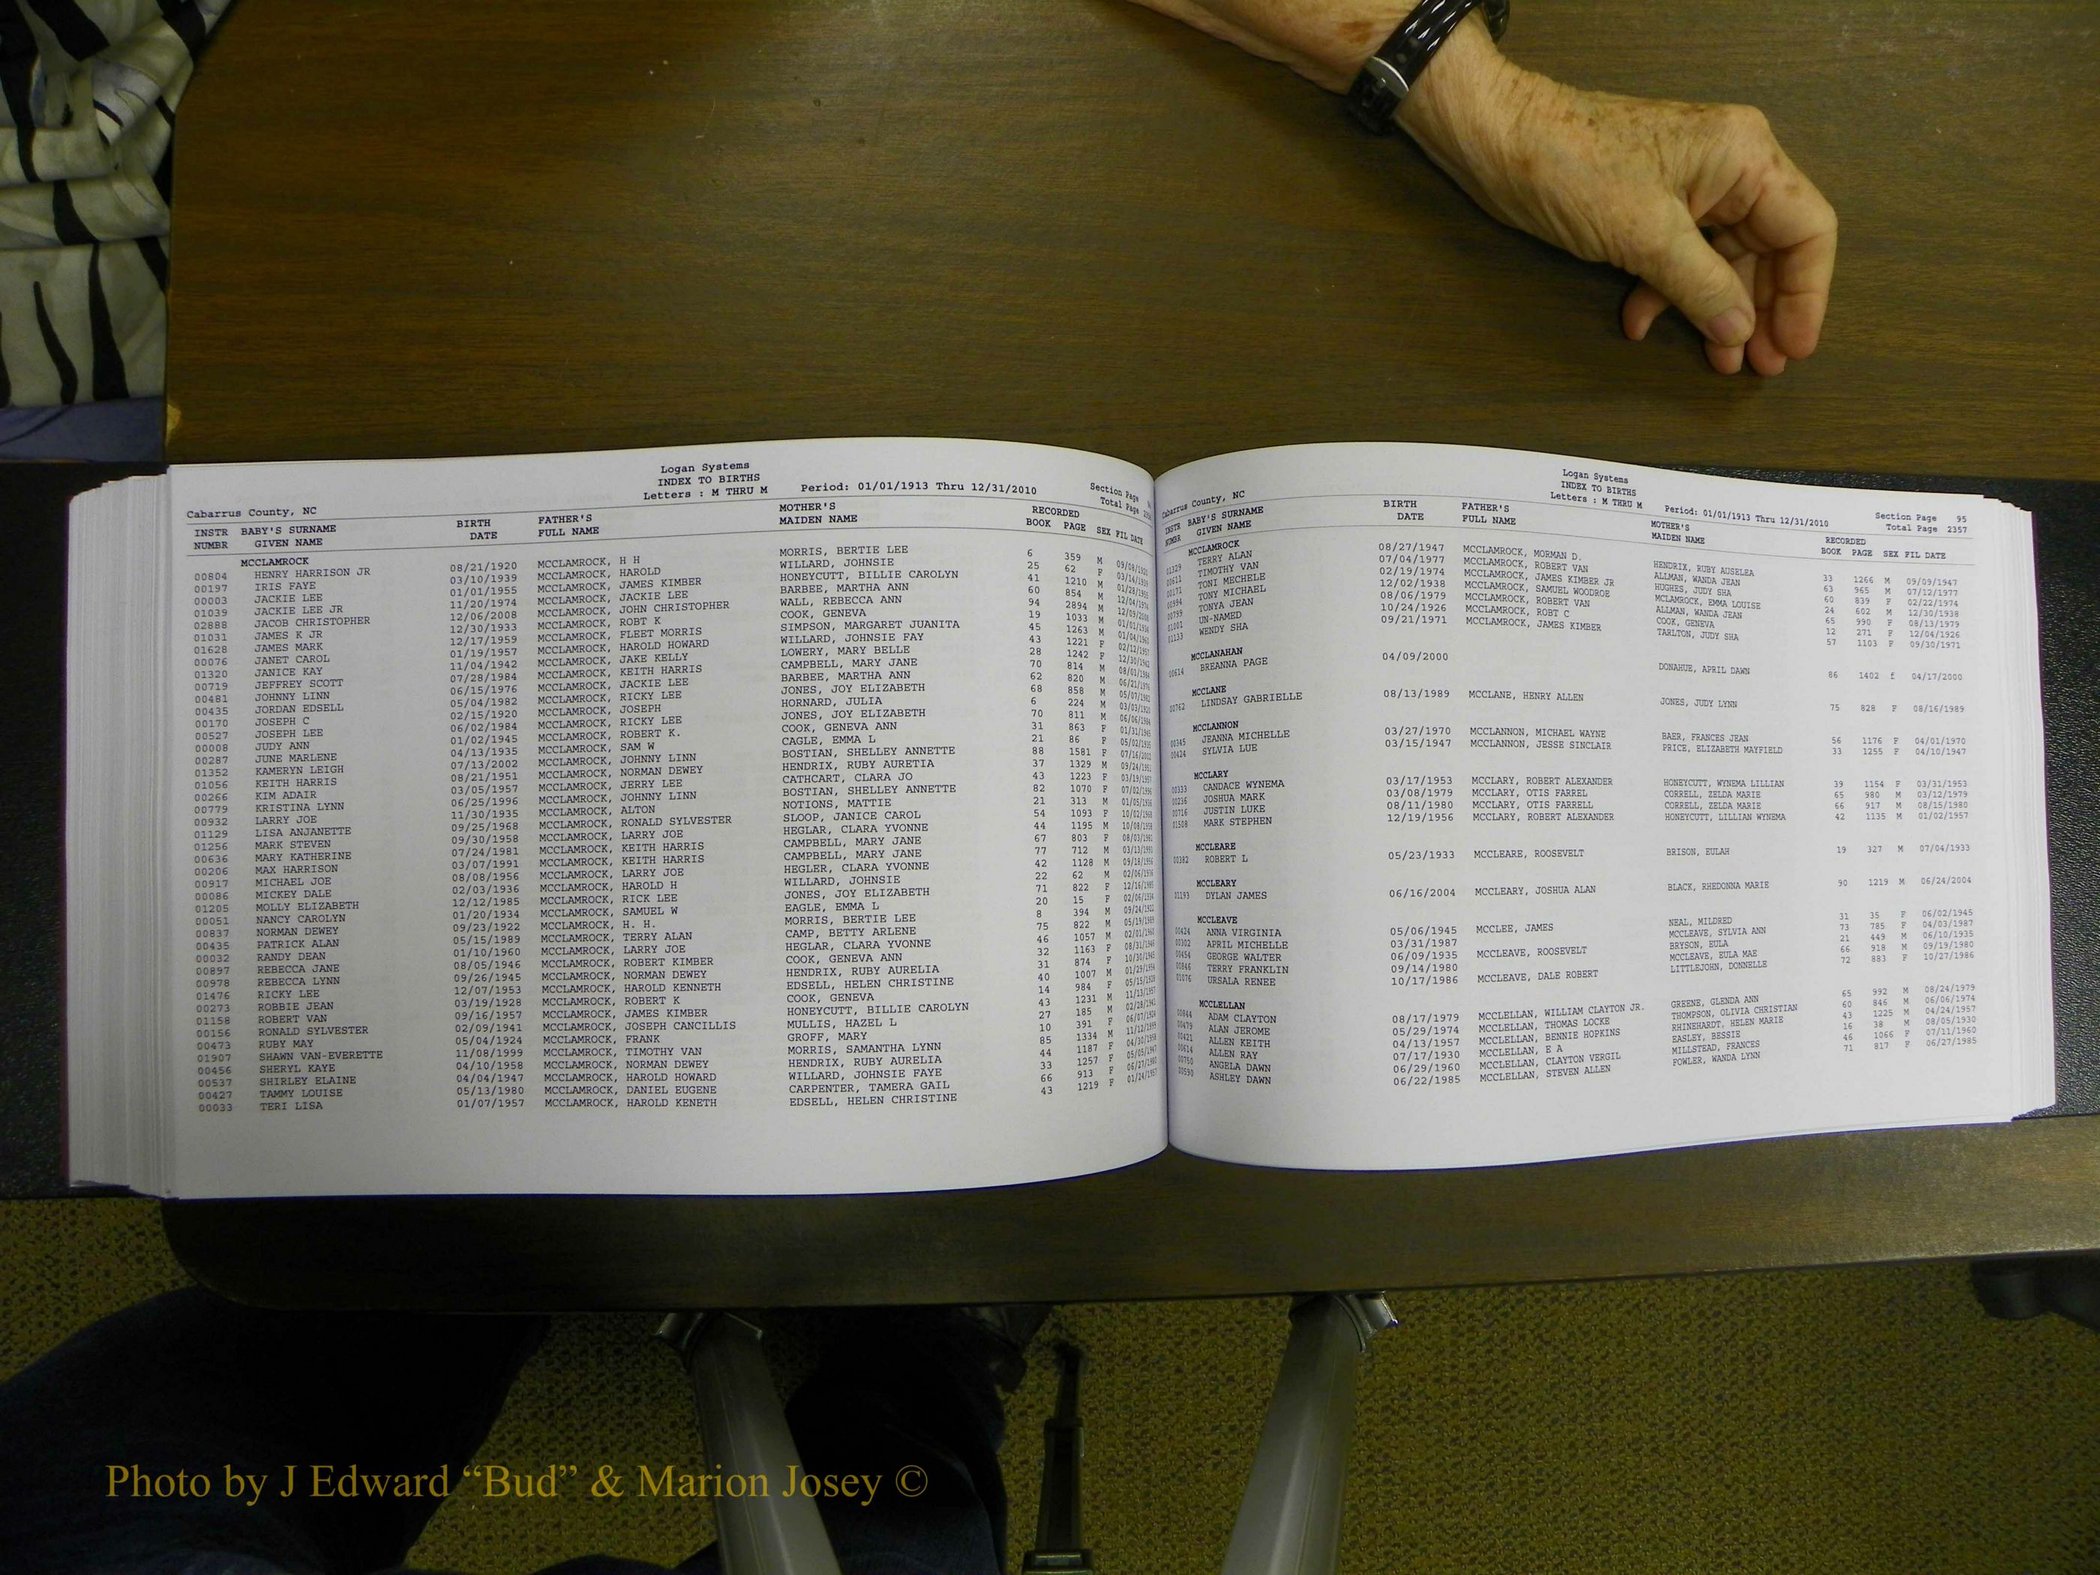 Logan Systems
INDEX TO BIRTHS
Cabarrus County, NC Letters : M THRU M Period: 01/01/1913 Thru 12/31/2010 Section Page
Total Page
INSTR NUMBR BABY'S SURNAME GIVEN NAME BIRTH DATE FATHER'S FULL NAME MOTHER'S MAIDEN NAME RECORDED BOOK PAGE SEX FIL DATE
MCCLAMROCK
00804 HENRY HARRISON JR 08/21/1920 MCCLAMROCK, H H MORRIS, BERTIE LEE 6 359 M
00197 IRIS FAYE 03/10/1939 MCCLAMROCK, HAROLD WILLARD, JOHNSIE 25 62 F
00003 JACKIE LEE 01/01/1955 MCCLAMROCK, JAMES KIMBER HONEYCUTT, BILLIE CAROLYN 41 1210 M
01039 JACKIE LEE JR 11/20/1974 MCCLAMROCK, JACKIE LEE BARBEE, MARTHA ANN 60 854 M
02888 JACOB CHRISTOPHER 12/06/2008 MCCLAMROCK, JOHN CHRISTOPHER WALL, REBECCA ANN 94 2894 M
01031 JAMES K JR 12/30/1933 MCCLAMROCK, ROBT K COOK, GENEVA 19 1033 M
01628 JAMES MARK 12/17/1959 MCCLAMROCK, FLEET MORRIS SIMPSON, MARGARET JUANITA 45 1263 M
00076 JANET CAROL 01/19/1957 MCCLAMROCK, HAROLD HOWARD WILLARD, JOHNSIE FAY 43 1221 F
01320 JANICE KAY 11/04/1942 MCCLAMROCK, JAKE KELLY LOWERY, MARY BELLE 28 1242 F
00719 JEFFREY SCOTT 07/28/1984 MCCLAMROCK, KEITH HARRIS CAMPBELL, MARY JANE 70 814 M
00481 JOHNNY LINN 06/15/1976 MCCLAMROCK, JACKIE LEE BARBEE, MARTHA ANN 62 820 M
00435 JORDAN EDSELL 05/04/1982 MCCLAMROCK, RICKY LEE JONES, JOY ELIZABETH 68 858 M
00170 JOSEPH C 02/15/1920 MCCLAMROCK, JOSEPH HORNARD, JULIA 6 224 M
00527 JOSEPH LEE 06/02/1984 MCCLAMROCK, RICKY LEE JONES, JOY ELIZABETH 70 811 M
00008 JUDY ANN 01/02/1945 MCCLAMROCK, ROBERT K. COOK, GENEVA ANN 31 863 F
00287 JUNE MARLENE 04/13/1935 MCCLAMROCK, SAM W CAGLE, EMMA L 21 86 F
01352 KAMERYN LEIGH 07/13/2002 MCCLAMROCK, JOHNNY LINN BOSTIAN, SHELLEY ANNETTE 88 1581 F
01056 KEITH HARRIS 08/21/1951 MCCLAMROCK, NORMAN DEWEY HENDRIX, RUBY AURETIA 37 1329 M
00266 KIM ADAIR 03/05/1957 MCCLAMROCK, JERRY LEE CATHCART, CLARA JO 43 1223 F
00779 KRISTINA LYNN 06/25/1996 MCCLAMROCK, JOHNNY LINN BOSTIAN, SHELLEY ANNETTE 82 1070 F
00932 LARRY JOE 11/30/1935 MCCLAMROCK, ALTON NOTIONS, MATTIE 21 313 M
01129 LISA ANJANETTE 09/25/1968 MCCLAMROCK, RONALD SYLVESTER SLOOP, JANICE CAROL 54 1093 F
01256 MARK STEVEN 09/30/1958 MCCLAMROCK, LARRY JOE HEGLAR, CLARA YVONNE 44 1195 M
00636 MARY KATHERINE 07/24/1981 MCCLAMROCK, KEITH HARRIS CAMPBELL, MARY JANE 67 803 F
00206 MAX HARRISON 03/07/1991 MCCLAMROCK, KEITH HARRIS CAMPBELL, MARY JANE 77 712 M
00917 MICHAEL JOE 08/08/1956 MCCLAMROCK, LARRY JOE HEGLER, CLARA YVONNE 42 1128 M
00086 MICKEY DALE 02/03/1936 MCCLAMROCK, HAROLD H WILLARD, JOHNSIE 22 62 M
01205 MOLLY ELIZABETH 12/12/1985 MCCLAMROCK, RICK LEE JONES, JOY ELIZABETH 71 822 F
00051 NANCY CAROLYN 01/20/1934 MCCLAMROCK, SAMUEL W EAGLE, EMMA L 20 15 F
00837 NORMAN DEWEY 09/23/1922 MCCLAMROCK, H. H. MORRIS, BERTIE LEE 8 394 M
00435 PATRICK ALAN 05/15/1989 MCCLAMROCK, TERRY ALAN CAMP, BETTY ARLENE 75 822 M
00032 RANDY DEAN 01/10/1960 MCCLAMROCK, LARRY JOE HEGLAR, CLARA YVONNE 46 1057 M
00897 REBECCA JANE 08/05/1946 MCCLAMROCK, ROBERT KIMBER COOK, GENEVA ANN 32 1163 F
00978 REBECCA LYNN 09/26/1945 MCCLAMROCK, NORMAN DEWEY HENDRIX, RUBY AURELIA 31 874 F
01476 RICKY LEE 12/07/1953 MCCLAMROCK, HAROLD KENNETH EDSELL, HELEN CHRISTINE 40 1007 M
00273 ROBBIE JEAN 03/19/1928 MCCLAMROCK, ROBERT K COOK, GENEVA 14 984 F
01158 ROBERT VAN 09/16/1957 MCCLAMROCK, JAMES KIMBER HONEYCUTT, BILLIE CAROLYN 43 1231 M
00156 RONALD SYLVESTER 02/09/1941 MCCLAMROCK, JOSEPH CANCILLIS MULLIS, HAZEL L 27 185 M
00473 RUBY MAY 05/04/1924 MCCLAMROCK, FRANK GROFF, MARY 10 391 F
01907 SHAWN VAN-EVERETTE 11/08/1999 MCCLAMROCK, TIMOTHY VAN MORRIS, SAMANTHA LYNN 85 1334 M
00456 SHERYL KAYE 04/10/1958 MCCLAMROCK, NORMAN DEWEY HENDRIX, RUBY AURELIA 44 1187 F
00537 SHIRLEY ELAINE 04/04/1947 MCCLAMROCK, HAROLD HOWARD WILLARD, JOHNSIE FAYE 33 1257 F
00427 TAMMY LOUISE 05/13/1980 MCCLAMROCK, DANIEL EUGENE CARPENTER, TAMERA GAIL 66 913 F
00033 TERI LISA 01/07/1957 MCCLAMROCK, HAROLD KENETH EDSELL, HELEN CHRISTINE 43 1219 F
Logan Systems
INDEX TO BIRTHS
Cabarrus County, NC Letters : M THRU M Period: 01/01/1913 Thru 12/31/2010 Section Page 95
Total Page 2357
INSTR NUMBR BABY'S SURNAME GIVEN NAME BIRTH DATE FATHER'S FULL NAME MOTHER'S MAIDEN NAME RECORDED BOOK PAGE SEX FIL DATE
MCCLAMROCK
01329 TERRY ALAN 08/27/1947 MCCLAMROCK, MORMAN D. HENDRIX, RUBY AUSELEA 33 1266 M 09/09/1947
00611 TIMOTHY VAN 07/04/1977 MCCLAMROCK, ROBERT VAN ALLMAN, WANDA JEAN 63 965 M 07/12/1977
00171 TONI MECHELE 02/19/1974 MCCLAMROCK, JAMES KIMBER JR HUGHES, JUDY SHA 60 839 F 02/22/1974
00994 TONY MICHAEL 12/02/1938 MCCLAMROCK, SAMUEL WOODROE MCLAMROCK, EMMA LOUISE 24 602 M 12/30/1938
00799 TONYA JEAN 08/06/1979 MCCLAMROCK, ROBERT VAN ALLMAN, WANDA JEAN 65 990 F 08/13/1979
01001 UN-NAMED 10/24/1926 MCCLAMROCK, ROBT C COOK, GENEVA 12 271 F 12/04/1926
01133 WENDY SHA 09/21/1971 MCCLAMROCK, JAMES KIMBER TARLTON, JUDY SHA 57 1103 F 09/30/1971
MCCLANAHAN
00614 BREANNA PAGE 04/09/2000 DONAHUE, APRIL DAWN 86 1402 f 04/17/2000
MCCLANE
00762 LINDSAY GABRIELLE 08/13/1989 MCCLANE, HENRY ALLEN JONES, JUDY LYNN 75 828 F 08/16/1989
MCCLANNON
00345 JEANNA MICHELLE 03/27/1970 MCCLANNON, MICHAEL WAYNE BAER, FRANCES JEAN 56 1176 F 04/01/1970
00424 SYLVIA LUE 03/15/1947 MCCLANNON, JESSE SINCLAIR PRICE, ELIZABETH MAYFIELD 33 1255 F 04/10/1947
MCCLARY
00333 CANDACE WYNEMA 03/17/1953 MCCLARY, ROBERT ALEXANDER HONEYCUTT, WYNEMA LILLIAN 39 1154 F 03/31/1953
00236 JOSHUA MARK 03/08/1979 MCCLARY, OTIS FARREL CORRELL, ZELDA MARIE 65 980 M 03/12/1979
00716 JUSTIN LUKE 08/11/1980 MCCLARY, OTIS FARRELL CORRELL, ZELDA MARIE 66 917 M 08/15/1980
01508 MARK STEPHEN 12/19/1956 MCCLARY, ROBERT ALEXANDER HONEYCUTT, LILLIAN WYNEMA 42 1135 M 01/02/1957
MCCLEARE
00382 ROBERT L 05/23/1933 MCCLEARE, ROOSEVELT BRISON, EULAH 19 327 M 07/04/1933
MCCLEARY
01193 DYLAN JAMES 06/16/2004 MCCLEARY, JOSHUA ALAN BLACK, RHEDONNA MARIE 90 1219 M 06/24/2004
MCCLEAVE
00424 ANNA VIRGINIA 05/06/1945 MCCLEE, JAMES NEAL, MILDRED 31 35 F 06/02/1945
00302 APRIL MICHELLE 03/31/1987 MCCLEAVE, SYLVIA ANN 73 785 F 04/03/1987
00454 GEORGE WALTER 06/09/1935 MCCLEAVE, ROOSEVELT BRYSON, EULA 21 449 M 06/10/1935
00846 TERRY FRANKLIN 09/14/1980 MCCLEAVE, EULA MAE 66 918 M 09/19/1980
01076 URSALA RENEE 10/17/1986 MCCLEAVE, DALE ROBERT LITTLEJOHN, DONNELLE 72 883 F 10/27/1986
MCCLELLAN
00844 ADAM CLAYTON 08/17/1979 MCCLELLAN, WILLIAM CLAYTON JR. GREENE, GLENDA ANN 65 992 M 08/24/1979
00479 ALAN JEROME 05/29/1974 MCCLELLAN, THOMAS LOCKE THOMPSON, OLIVIA CHRISTIAN 60 846 M 06/06/1974
00421 ALLEN KEITH 04/13/1957 MCCLELLAN, BENNIE HOPKINS RHINEHARDT, HELEN MARIE 43 1225 M 04/24/1957
00614 ALLEN RAY 07/17/1930 MCCLELLAN, E A EASLEY, BESSIE 16 38 M 08/05/1930
00750 ANGELA DAWN 06/29/1960 MCCLELLAN, CLAYTON VERGIL MILLSTEAD, FRANCES 46 1066 F 07/11/1960
00590 ASHLEY DAWN 06/22/1985 MCCLELLAN, STEVEN ALLEN FOWLER, WANDA LYNN 71 817 F 06/27/1985
Photo by J Edward “Bud” & Marion Josey ©